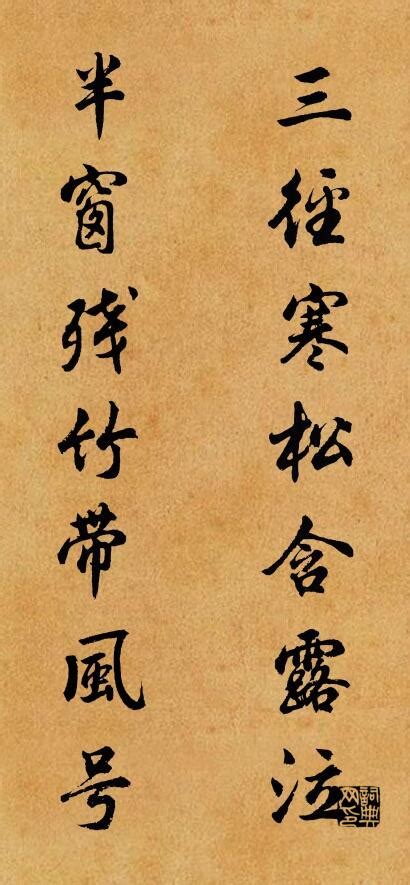 三徑寒松含露泣
半窗残竹帶風号
詞典网印